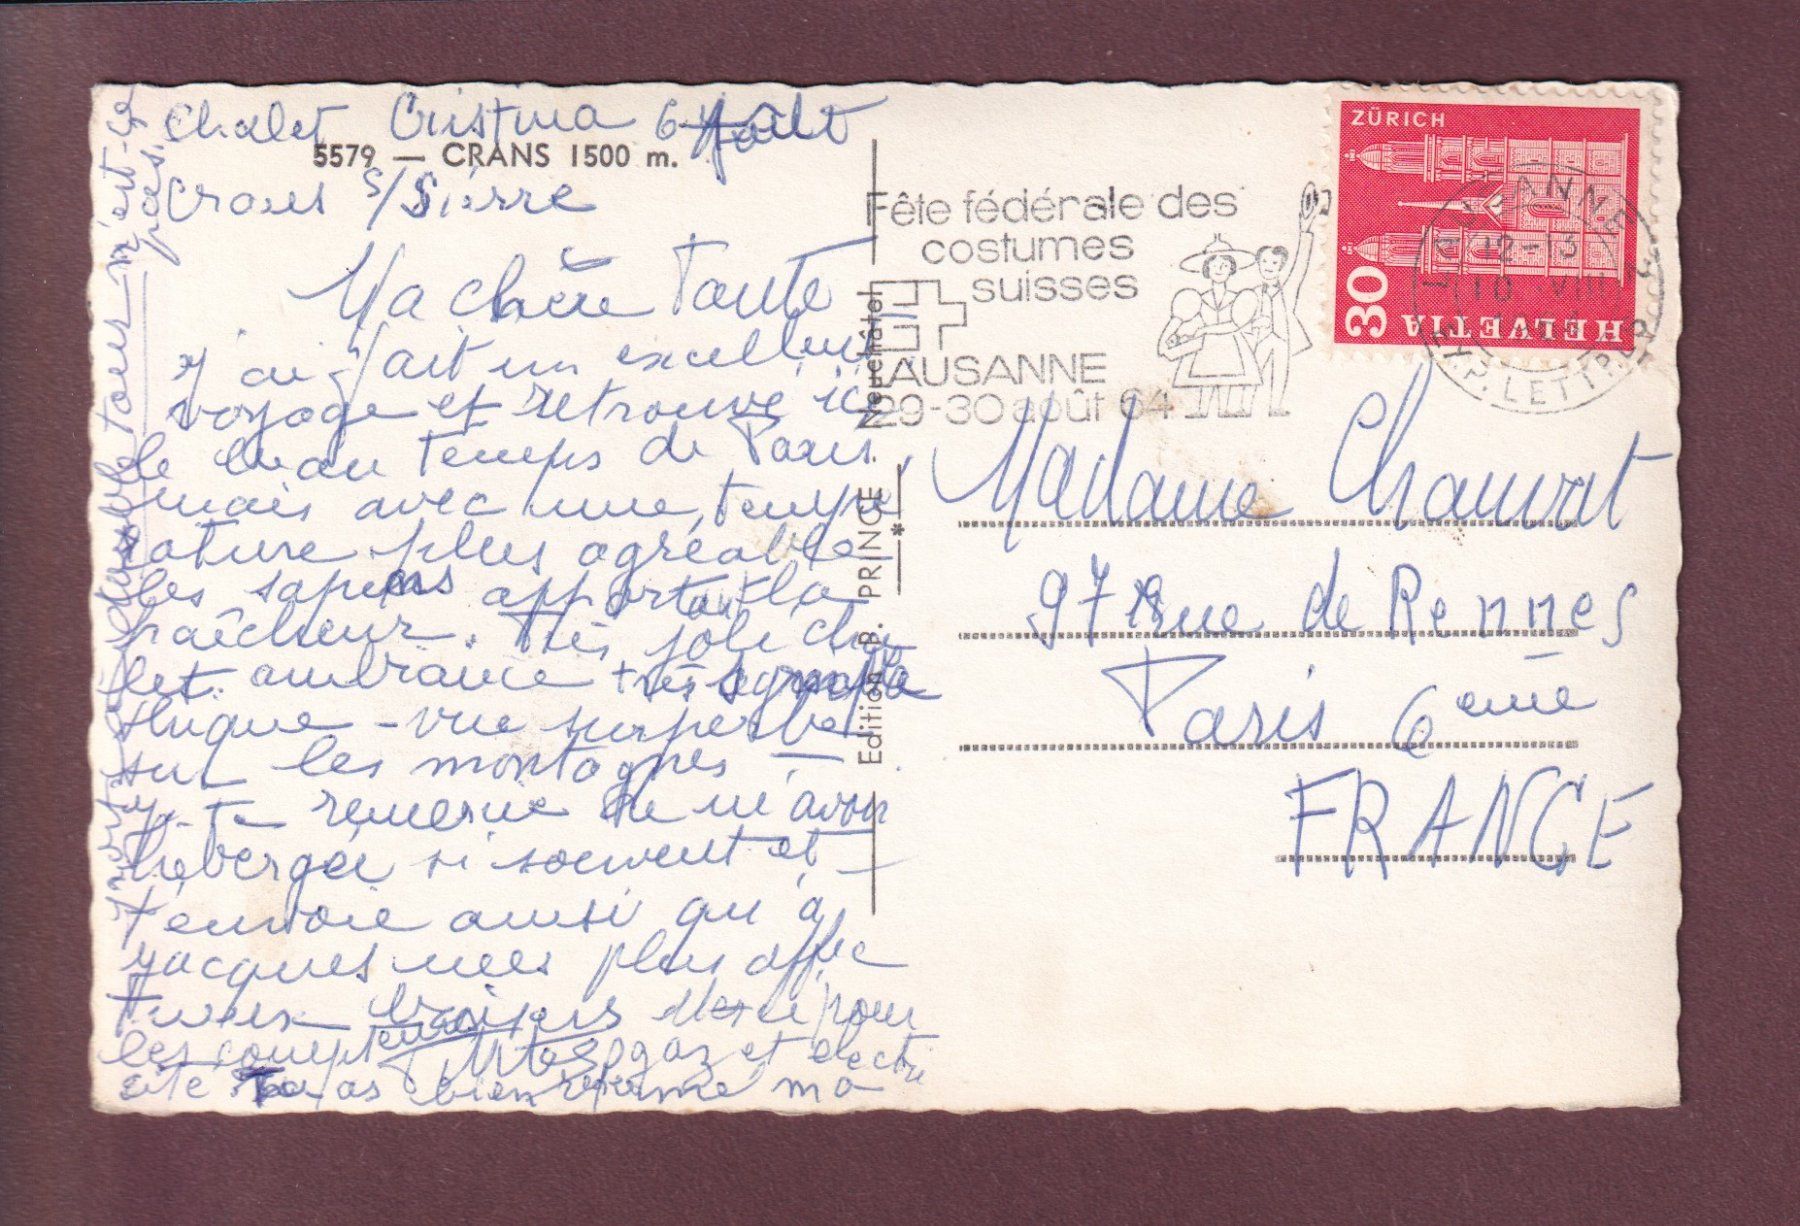 Chalet Cristina 6 Août
5579 — CRANS 1500 m.
Crans s/Sierre
Ma chère Tante
J'ai fait un excellent
voyage et retrouve ici
le beau temps de Paris
mais avec une tempé
rature plus agréable
les sapins apportant la
fraîcheur. Très joli cha
let. ambiance très sympa
thique - vue superbe
sur les montagnes —
Je te remercie de m'avoir
hébergée si souvent et
t'envoie ainsi qu'à
Jacques mes plus affec
tueux baisers Merci pour
les compteurs gaz et électri
cité Tu as bien refermé ma
porte à double tour n'est-ce
pas.
Edition B. PRINCE * Neuchâtel
Fête fédérale des
costumes
suisses
LAUSANNE
29-30 août 64
ZÜRICH
30
HELVETIA
LAUSANNE
12-13
10 VIII
EXP. LETTRES
Madame Chauvat
97 Rue de Rennes
Paris 6eme
FRANCE